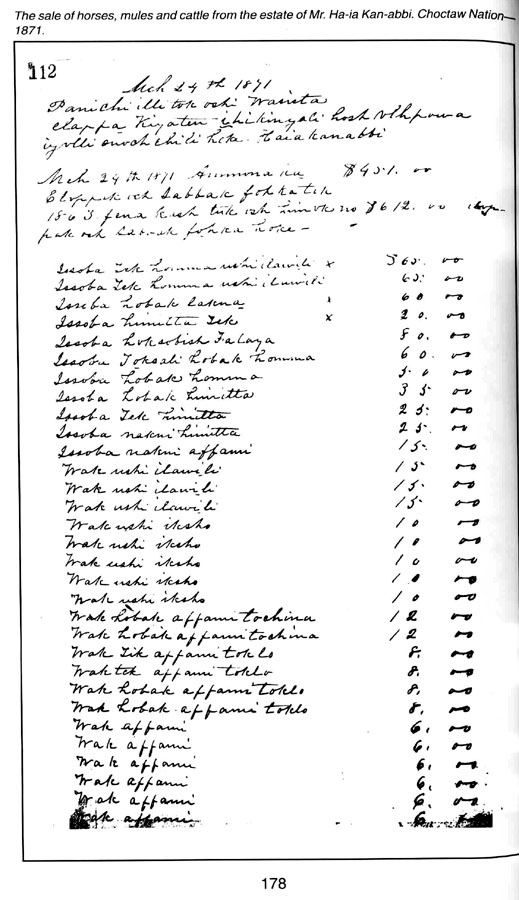 The sale of horses, mules and cattle from the estate of Mr. Ha-ia Kan-abbi. Choctaw Nation—
1871.
112
Mch 24th 1871
Panichi illi tok oshi Wasita
elappa Kiyatin hosh
chili hoke. Haiakanabbi
Mch 24th 1871 $451. 00
Eloppak och Sabbak fohkatik
1863 fena kash tuk och himok no $612. 00
pak och fohka hoke —
Issoba Tek homma ushi ilawili x $65. 00
Issoba Tek homma ushi ilawili 65. 00
Issoba hobak lakna x 60 00
Issoba himitta Tek x 20. 00
Issoba haksobish Falaya 80. 00
Issoba Toksali hobak homma 60. 00
Issoba hobak homma 50 00
Issoba hobak himitta 35. 00
Issoba Tek himitta 25. 00
Issoba nakni himitta 25. 00
Issoba nakni affami 15. 00
Wak ushi ilawili 15 00
Wak ushi ilawili 15. 00
Wak ushi ilawili 15. 00
Wak ushi iksho 10 00
Wak ushi iksho 10 00
Wak ushi iksho 10 00
Wak ushi iksho 10 00
Wak ushi iksho 10 00
Wak hobak affami tochina 12 00
Wak hobak affami tochina 12 00
Wak Tik affami toklo 8. 00
Wak tek affami toklo 8. 00
Wak hobak affami toklo 8. 00
Wak hobak affami toklo 8. 00
Wak affami 6. 00
Wak affami 6. 00
Wak affami 6. 00
Wak affami 6. 00
Wak affami 6. 00
Wak affami 6
178